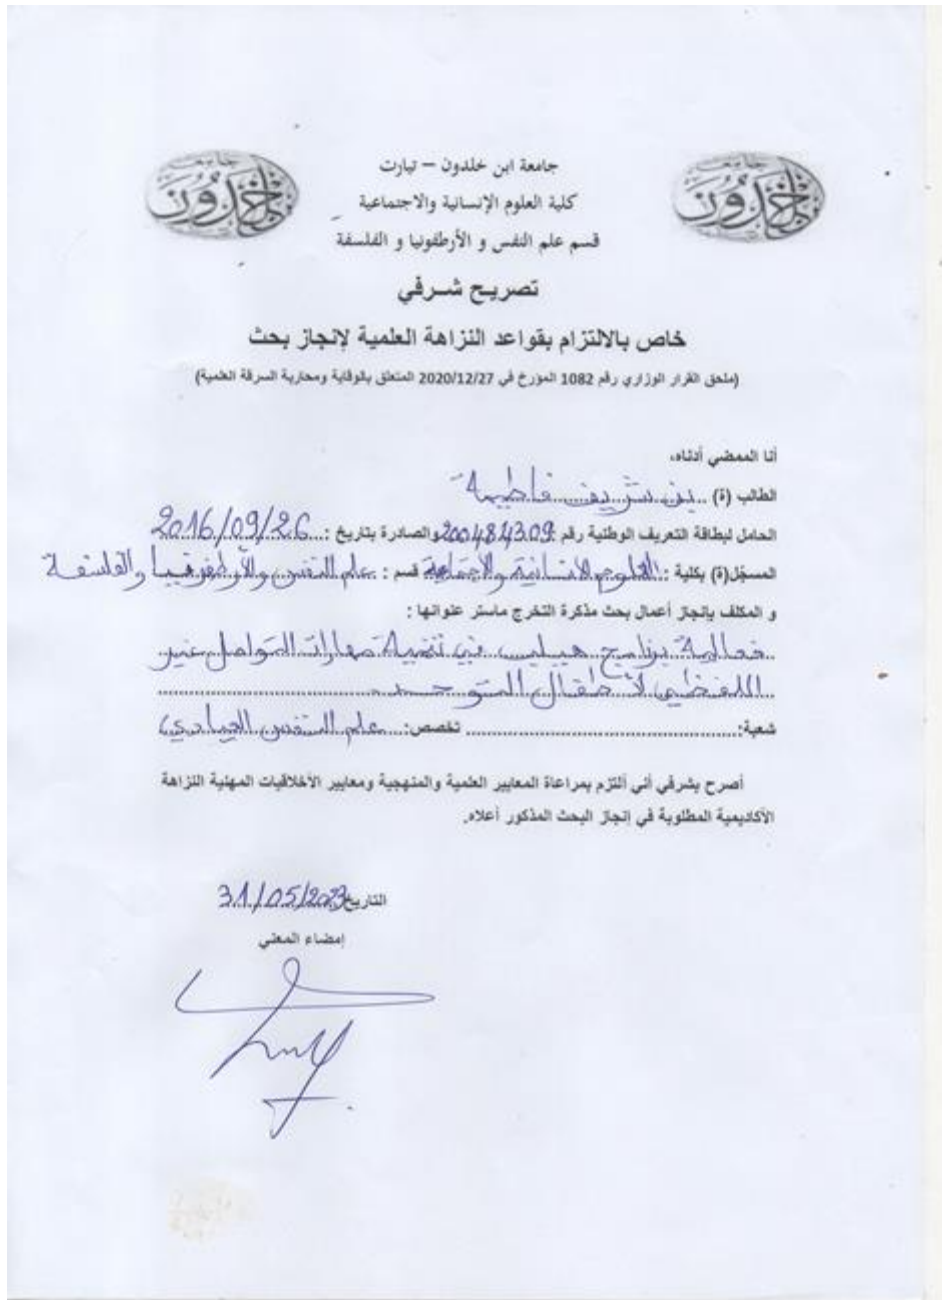 جامعة ابن خلدون – تيارت
كلية العلوم الإنسانية والاجتماعية
قسم علم النفس و الأرطفونيا و الفلسفة
تصريح شرفي
خاص بالالتزام بقواعد النزاهة العلمية لإنجاز بحث
(ملحق القرار الوزاري رقم 1082 المؤرخ في 2020/12/27 المتعلق بالوقاية ومحاربة السرقة العلمية)
أنا الممضي أدناه،
الطالب (ة) ..بن شريف.....فاطيمة
الحامل لبطاقة التعريف الوطنية رقم :200484309 والصادرة بتاريخ :...2016/09/26
المسجل(ة) بكلية :..العلوم الانسانية والاجتماعية قسم : علم النفس والأرطفونيا والفلسفة
و المكلف بإنجاز أعمال بحث مذكرة التخرج ماستر عنوانها :
فعالية برنامج هيليب في تنمية مهارات التواصل غير
اللفظي لأطفال التوحد
شعبة:........................ تخصص:....علم النفس العيادي
أصرح بشرفي أني ألتزم بمراعاة المعايير العلمية والمنهجية ومعايير الأخلاقيات المهنية النزاهة
الأكاديمية المطلوبة في إنجاز البحث المذكور أعلاه.
التاريخ 31/05/2023
إمضاء المعني